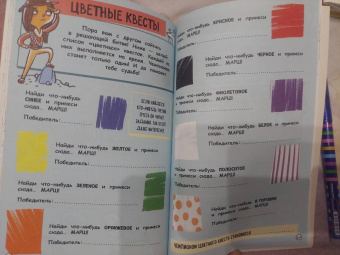 ЦВЕТНЫЕ КВЕСТЫ
Пора вам с другом сойтись
в решающей битве! Ниже —
список «цветных» квестов. Каждый из
них выполняется на время. Чемпионом
станет только один! И да поможет
тебе судьба!
Найди что-нибудь
СИНЕЕ и принеси
сюда... МАРШ!
Победитель:
Найди что-нибудь
ЖЕЛТОЕ и принеси
сюда... МАРШ!
Победитель:
Найди что-нибудь
ЗЕЛЕНОЕ и принеси
сюда... МАРШ!
Победитель:
Найди что-нибудь
ОРАНЖЕВОЕ и принеси
сюда... МАРШ!
Победитель:
Найди что-нибудь КРАСНОЕ и принеси
сюда... МАРШ!
Победитель:
Найди что-нибудь ЧЕРНОЕ и принеси
сюда... МАРШ!
Победитель:
Найди что-нибудь ФИОЛЕТОВОЕ
и принеси сюда... МАРШ!
Победитель:
Найди что-нибудь БЕЛОЕ и принеси
сюда... МАРШ!
Победитель:
Найди что-нибудь ПОЛОСАТОЕ
и принеси сюда... МАРШ!
Победитель:
Найди что-нибудь В ГОРОШЕК
и принеси сюда... МАРШ!
Победитель:
ЧЕМПИОНОМ ЦВЕТНОГО КВЕСТА СТАНОВИТСЯ